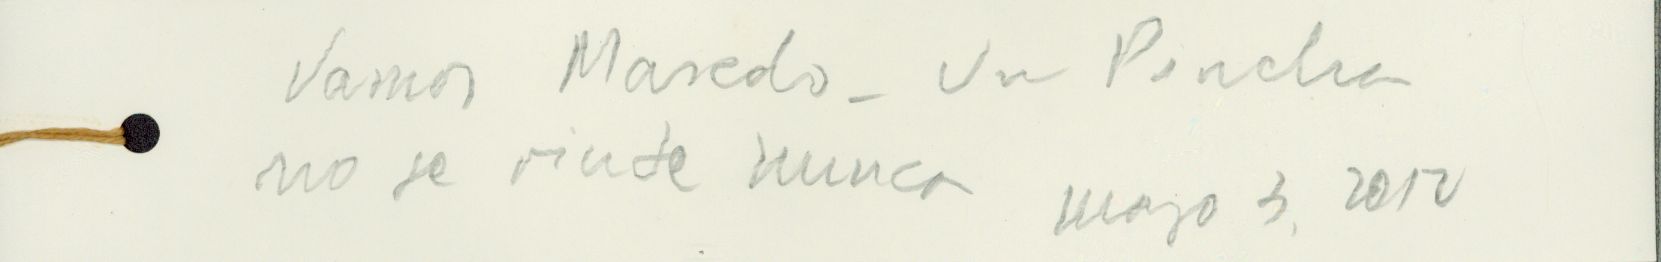 Vamos Marcelo - Un Pincha
no se rinde nunca mayo 3, 2012